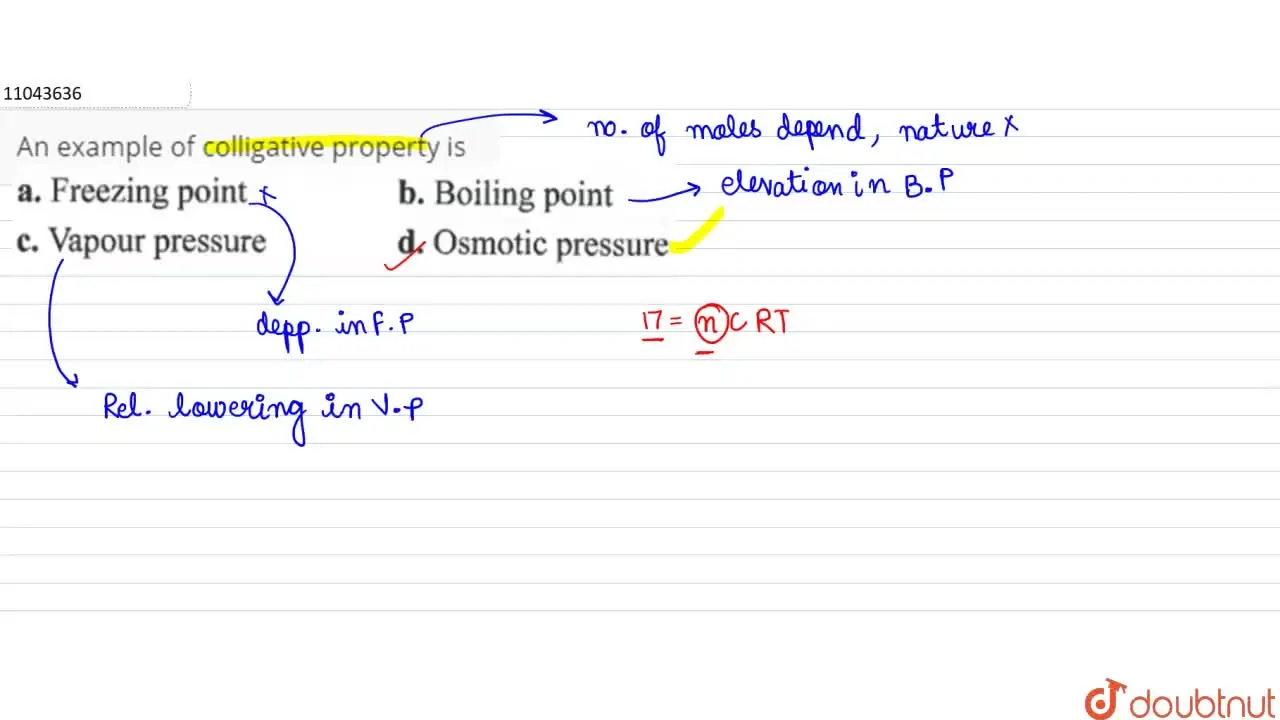 11043636
no. of moles depend, nature x
An example of colligative property is
a. Freezing point x b. Boiling point elevation in B.P
c. Vapour pressure d. Osmotic pressure
depp. in F.P π = n C RT
Rel. lowering in V.P
doubtnut